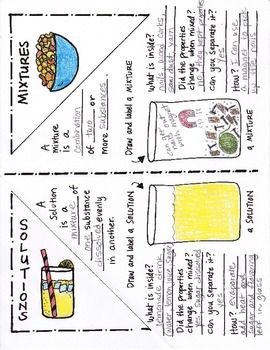 MIXTURES
A
mixture
is a
combination
of two or
more substances.
Draw and label a MIXTURE
a MIXTURE
What is inside?
nails,
saw dust, yarn
Did the properties
change when mixed?
no, they kept
can you separate it?
How? I can use
a magnet to pick
up the nails
SOLUTIONS
A
Solution
is a
mixture of
one substance
dissolved evenly
in another.
Draw and label a SOLUTION
a SOLUTION
What is inside?
lemonade drink
Did the properties
change when mixed?
yes, sugar dissolved
can you separate it?
yes
How? evaporate
add heat and
sugar + flavoring
left in glass